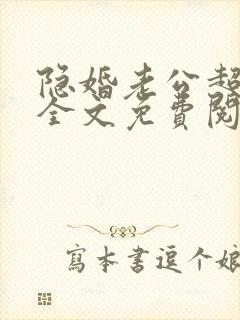 隐婚老公超
全文免費閱
寫本書逗个娘